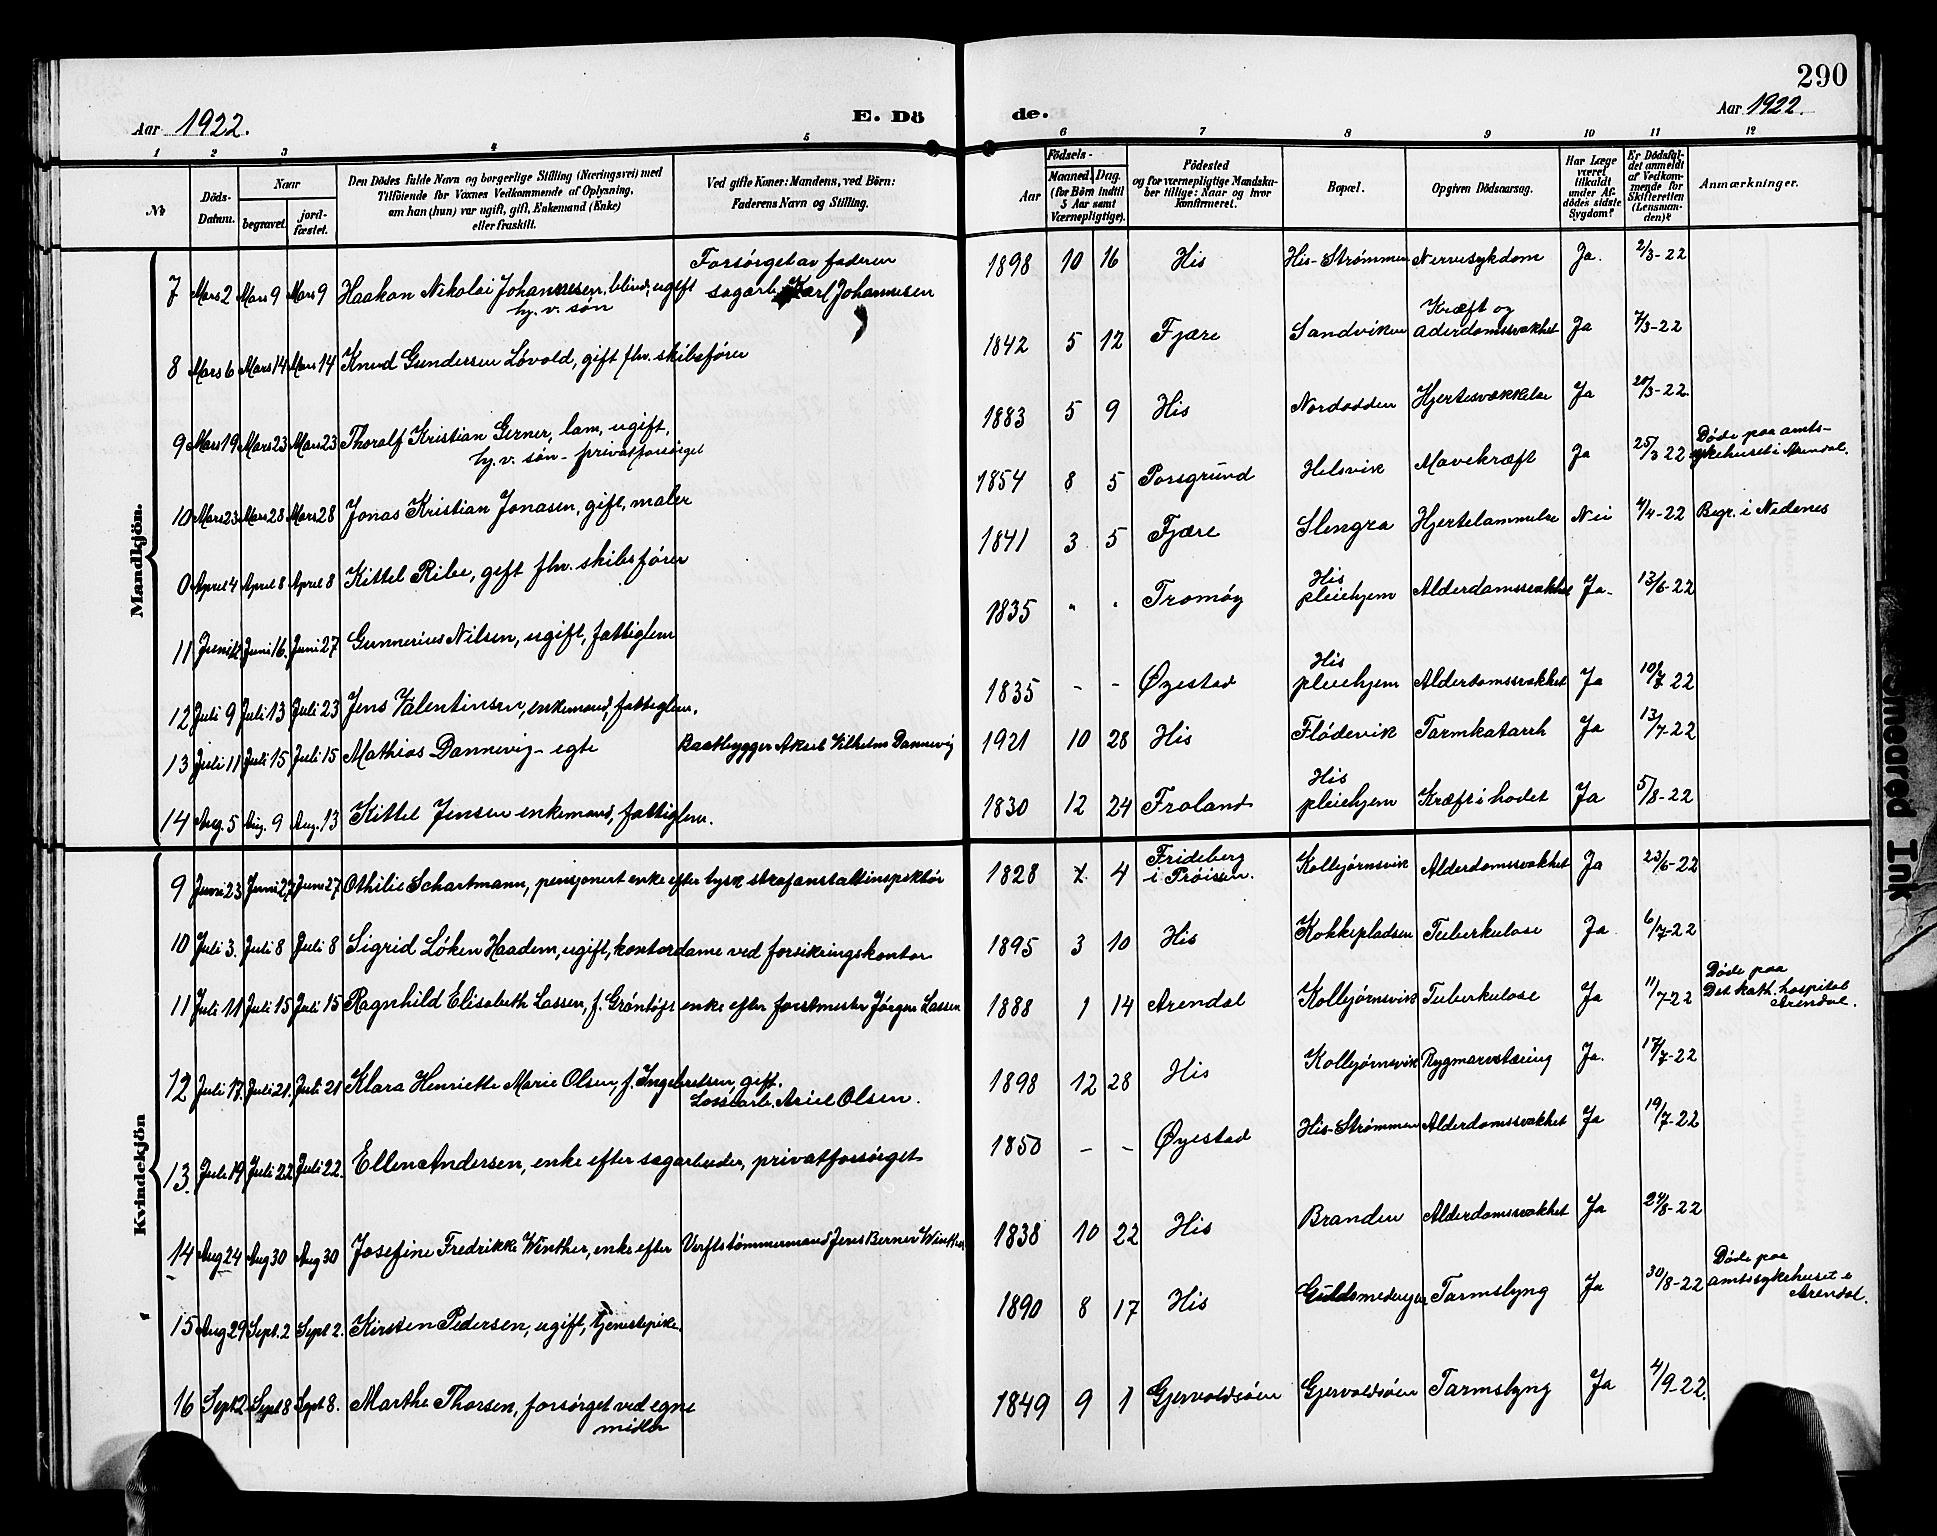 290
Aar 1922.
E. Dö
de.
Aar 1922.
1 2 3 4 5 6 7 8 9 10 11 12
No
Döds-Datum.
Naar
begravet.
jord-fæstet.
Den Dödes fulde Navn og borgerlige Stilling (Næringsvei) med
Tilföiende for Voxnes Vedkommende af Oplysning,
om han (hun) var ugift, gift, Enkemand (Enke)
eller fraskilt.
Ved gifte Koner: Mandens, ved Börn:
Faderens Navn og Stilling.
Födsels-
Aar
Maaned. Dag.
(for Börn indtil
5 Aar samt
Værnepligtige).
Födested
og for værnepligtige Mandska-
ber tillige: Naar og hvor
konfirmeret.
Bopæl.
Opgiven Dödsaarsag.
Har Læge
været
tilkaldt
under Af-
dödes sidste
Sygdom?
Er Dödsfal-
det anmeldt
af Vedkom-
mende for
Skifteretten
(Lensman-
den)?
Anmærkninger.
Mandkjön.
7 Mars 2 Mars 9 Mars 9 Haakon Nikolai Johannesen, blind, ugift hj. v. søn Forsørget av faderen sagarb. Karl Johannesen 1898 10 16 His His-Strømmen Nervesykdom Ja. 2/3-22
8 Mars 6 Mars 14 Mars 14 Knud Gundersen Løvold, gift fhv. skibsfører 1842 5 12 Fjære Sandviken Kræft og aderdomssvakhet Ja 7/3-22
9 Mars 19 Mars 23 Mars 23 Thoralf Kristian Gerner, lam, ugift, hj. v. søn - privatforsørget 1883 5 9 His Nordodden Hjertesvækkelse Ja 20/3-22.
10 Mars 23 Mars 28 Mars 28 Jonas Kristian Jonasen, gift, maler 1854 8 5 Porsgrund Helsvik Mavekræft Ja 25/3 22 Døde paa amts-sykehuset i Arendal.
0 April 4 April 8 April 8 Kittel Ribe, gift fhv. skibsfører 1841 3 5 Fjære Slengra Hjertelammelse Nei 4/4-22 Begr. i Nedenes
11 Juni 12 Juni 16. Juni 27 Gunnerius Nilsen, ugift, fattiglem 1835 " " Tromøy His pleiehjem Alderdomssvakhet Ja- 13/6-22
12 Juli 9 Juli 13 Juli 23 Jens Valentinsen, enkemand, fattiglem. 1835 - - Øyestad His pleiehjem Alderdomssvakhet Ja 10/7 22
13 Juli 11 Juli 15 Juli 15 Mathias Dannevig - egte Baatbygger Aksel Vilhelm Dannevig 1921 10 28 His Flødevik Tarmkatarrh Ja 13/7-22
14 Aug. 5 Aug. 9 Aug. 13 Kittel Jensen enkemand, fattiglem. 1830 12 24 Froland His pleiehjem Kræft i hodet Ja 5/8-22
Kvindekjön
9 Juni 23 Juni 27 Juni 27 Othilie Schartmann, pensjonert enke efter tysk strafanstaltinspektør 1828 7 4 Frideberg i Prøisen. Kolbjørnsvik Alderdomssvakhet Ja 23/6-22
10 Juli 3. Juli 8 Juli 8 Sigrid Løken Haadem, ugift, kontordame ved forsikringskontor 1895 3 10 His Kokkepladsen Tuberkulose Ja 6/7-22
11 Juli 11 Juli 15 Juli 15 Ragnhild Elisabeth Lassen, f. Grøntoft enke efter forstmester Jørgen Lassen 1888 1 14 Arendal Kolbjørnsvik Tuberkulose Ja 11/7-22 Døde paa Det kath. hospital Arendal.
12 Juli 17. Juli 21. Juli 21 Klara Henriette Marie Olsen, f. Ingebretsen, gift. Lossearb. Ariel Olsen. 1898 12 28 His Kolbjørnsvik Rygmarvstæring Ja. 17/7-22
13. Juli 19 Juli 22 Juli 22. Ellen Andersen, enke efter sagarbeider, privatforsørget 1850 - - Øyestad His-Strømmen Alderdomssvakhet Ja 19/7-22
14 Aug 24 Aug 30 Aug 30 Josefine Fredrikke Winther, enke efter Verftstømmermand Jens Berner Winther 1838 10 22 His Branden Alderdomssvakhet Ja 24/8-22
15 Aug 29 Sept. 2 Sept 2. Kirsten Pedersen, ugift, tjenestepike. 1890 8 17 His Guldsmedengen Tarmslyng Ja 30/8-22 Døde paa amtssykehuset i Arendal.
16 Sept 2 Sept 8 Sept 8. Marthe Thorsen, forsørget ved egne midler 1849 9 1 Gjervoldsøen Gjervoldsøen Tarmslyng Ja 4/9-22.
Smeared Ink